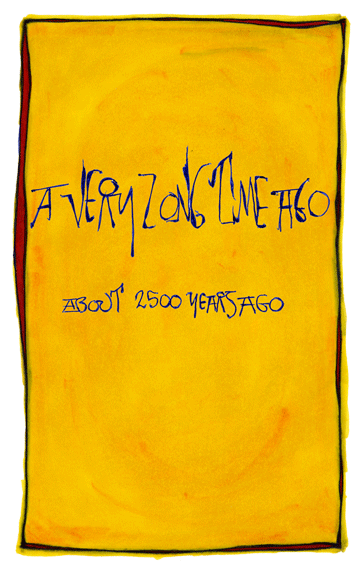 A VERY LONG TIME AGO
ABOUT 2500 YEARS AGO